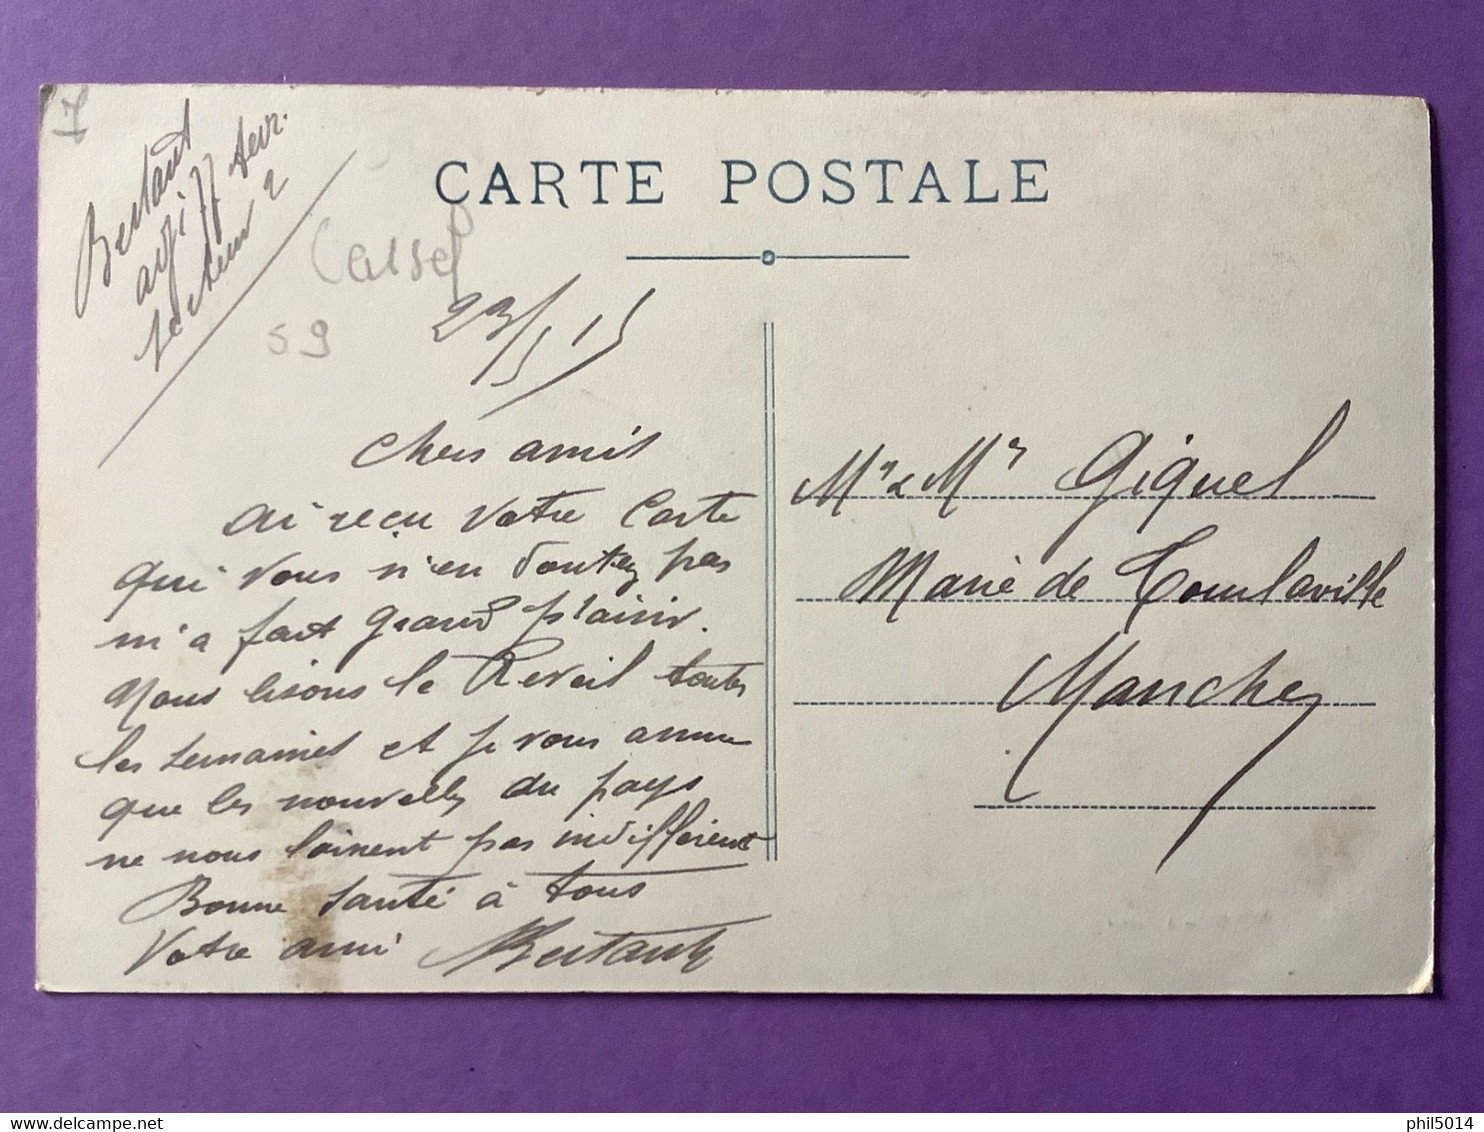 7
Bertaut
77 terr.
secteur 2
CARTE POSTALE
Cassel
59
23/5 15
Chers amis
ai reçu votre Carte
qui vous n'en doutez pas
m'a fait grand plaisir.
Nous lisons le Reveil toutes
les semaines et je vous assure
que les nouvelles du pays
ne nous laissent pas indifférent
Bonne santé à tous
Votre ami Bertaut
Mr & Me Giquel
Mairie de Tourlaville
Manche
delcampe.net
phil5014